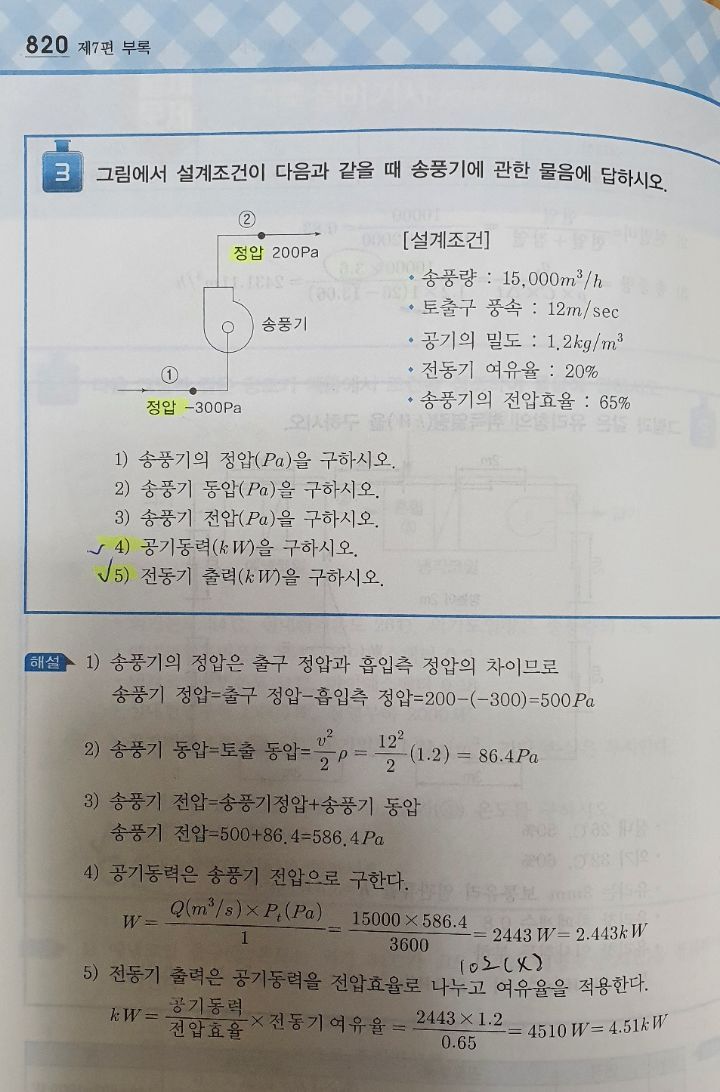 820 제7편 부록
3 그림에서 설계조건이 다음과 같을 때 송풍기에 관한 물음에 답하시오.
②
정압 200Pa
송풍기
①
정압 -300Pa
[설계조건]
• 송풍량 : 15,000m³/h
• 토출구 풍속 : 12m/sec
• 공기의 밀도 : 1.2kg/m³
• 전동기 여유율 : 20%
• 송풍기의 전압효율 : 65%
1) 송풍기의 정압(Pa)을 구하시오.
2) 송풍기 동압(Pa)을 구하시오.
3) 송풍기 전압(Pa)을 구하시오.
4) 공기동력(kW)을 구하시오.
5) 전동기 출력(kW)을 구하시오.
해설 1) 송풍기의 정압은 출구 정압과 흡입측 정압의 차이므로
송풍기 정압=출구 정압-흡입측 정압=200-(-300)=500Pa
2) 송풍기 동압=토출 동압=v²/2 ρ = 12²/2 (1.2) = 86.4Pa
3) 송풍기 전압=송풍기정압+송풍기 동압
송풍기 전압=500+86.4=586.4Pa
4) 공기동력은 송풍기 전압으로 구한다.
W = Q(m³/s)×Pt(Pa)/1 = 15000×586.4/3600 = 2443 W = 2.443kW
5) 전동기 출력은 공기동력을 전압효율로 나누고 여유율을 적용한다.
kW = 공기동력/전압효율 × 전동기여유율 = 2443×1.2/0.65 = 4510 W = 4.51kW